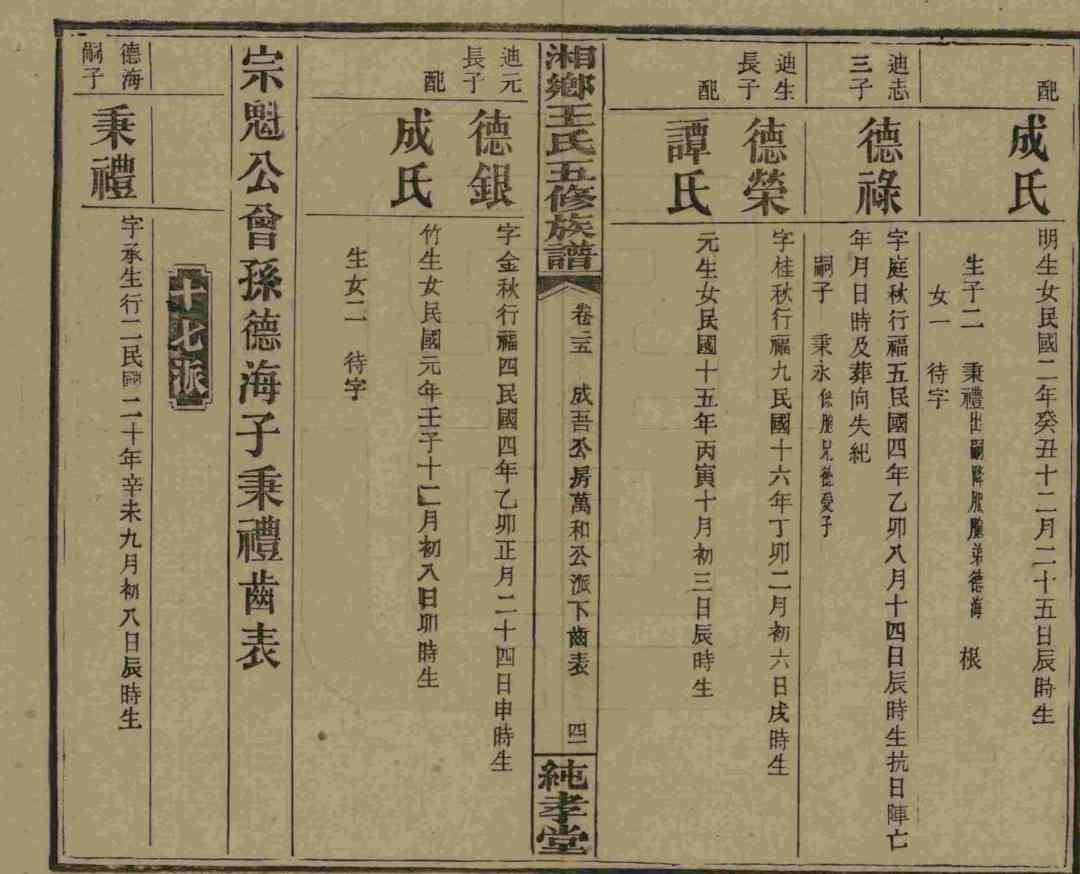 配
成氏
明生女民國二年癸丑十二月二十五日辰時生
生子二 秉禮出嗣降服胞弟德海 根
女一 待字
迪志
三子
德祿
字庭秋行福五民國四年乙卯八月十四日辰時生抗日陣亡
年月日時及葬向失紀
嗣子 秉永係胞兄德愛子
迪生
長子
德榮
字桂秋行福九民國十六年丁卯二月初六日戌時生
配
譚氏
元生女民國十五年丙寅十月初三日辰時生
湘鄉王氏五修族譜
卷三五 成吾公房萬和公派下齒表 四一
純孝堂
迪元
長子
德銀
字金秋行福四民國四年乙卯正月二十四日申時生
配
成氏
竹生女民國元年壬子十二月初八日卯時生
生女二 待字
宗魁公曾孫德海子秉禮齒表
十七派
德海
嗣子
秉禮
字承生行二民國二十年辛未九月初八日辰時生